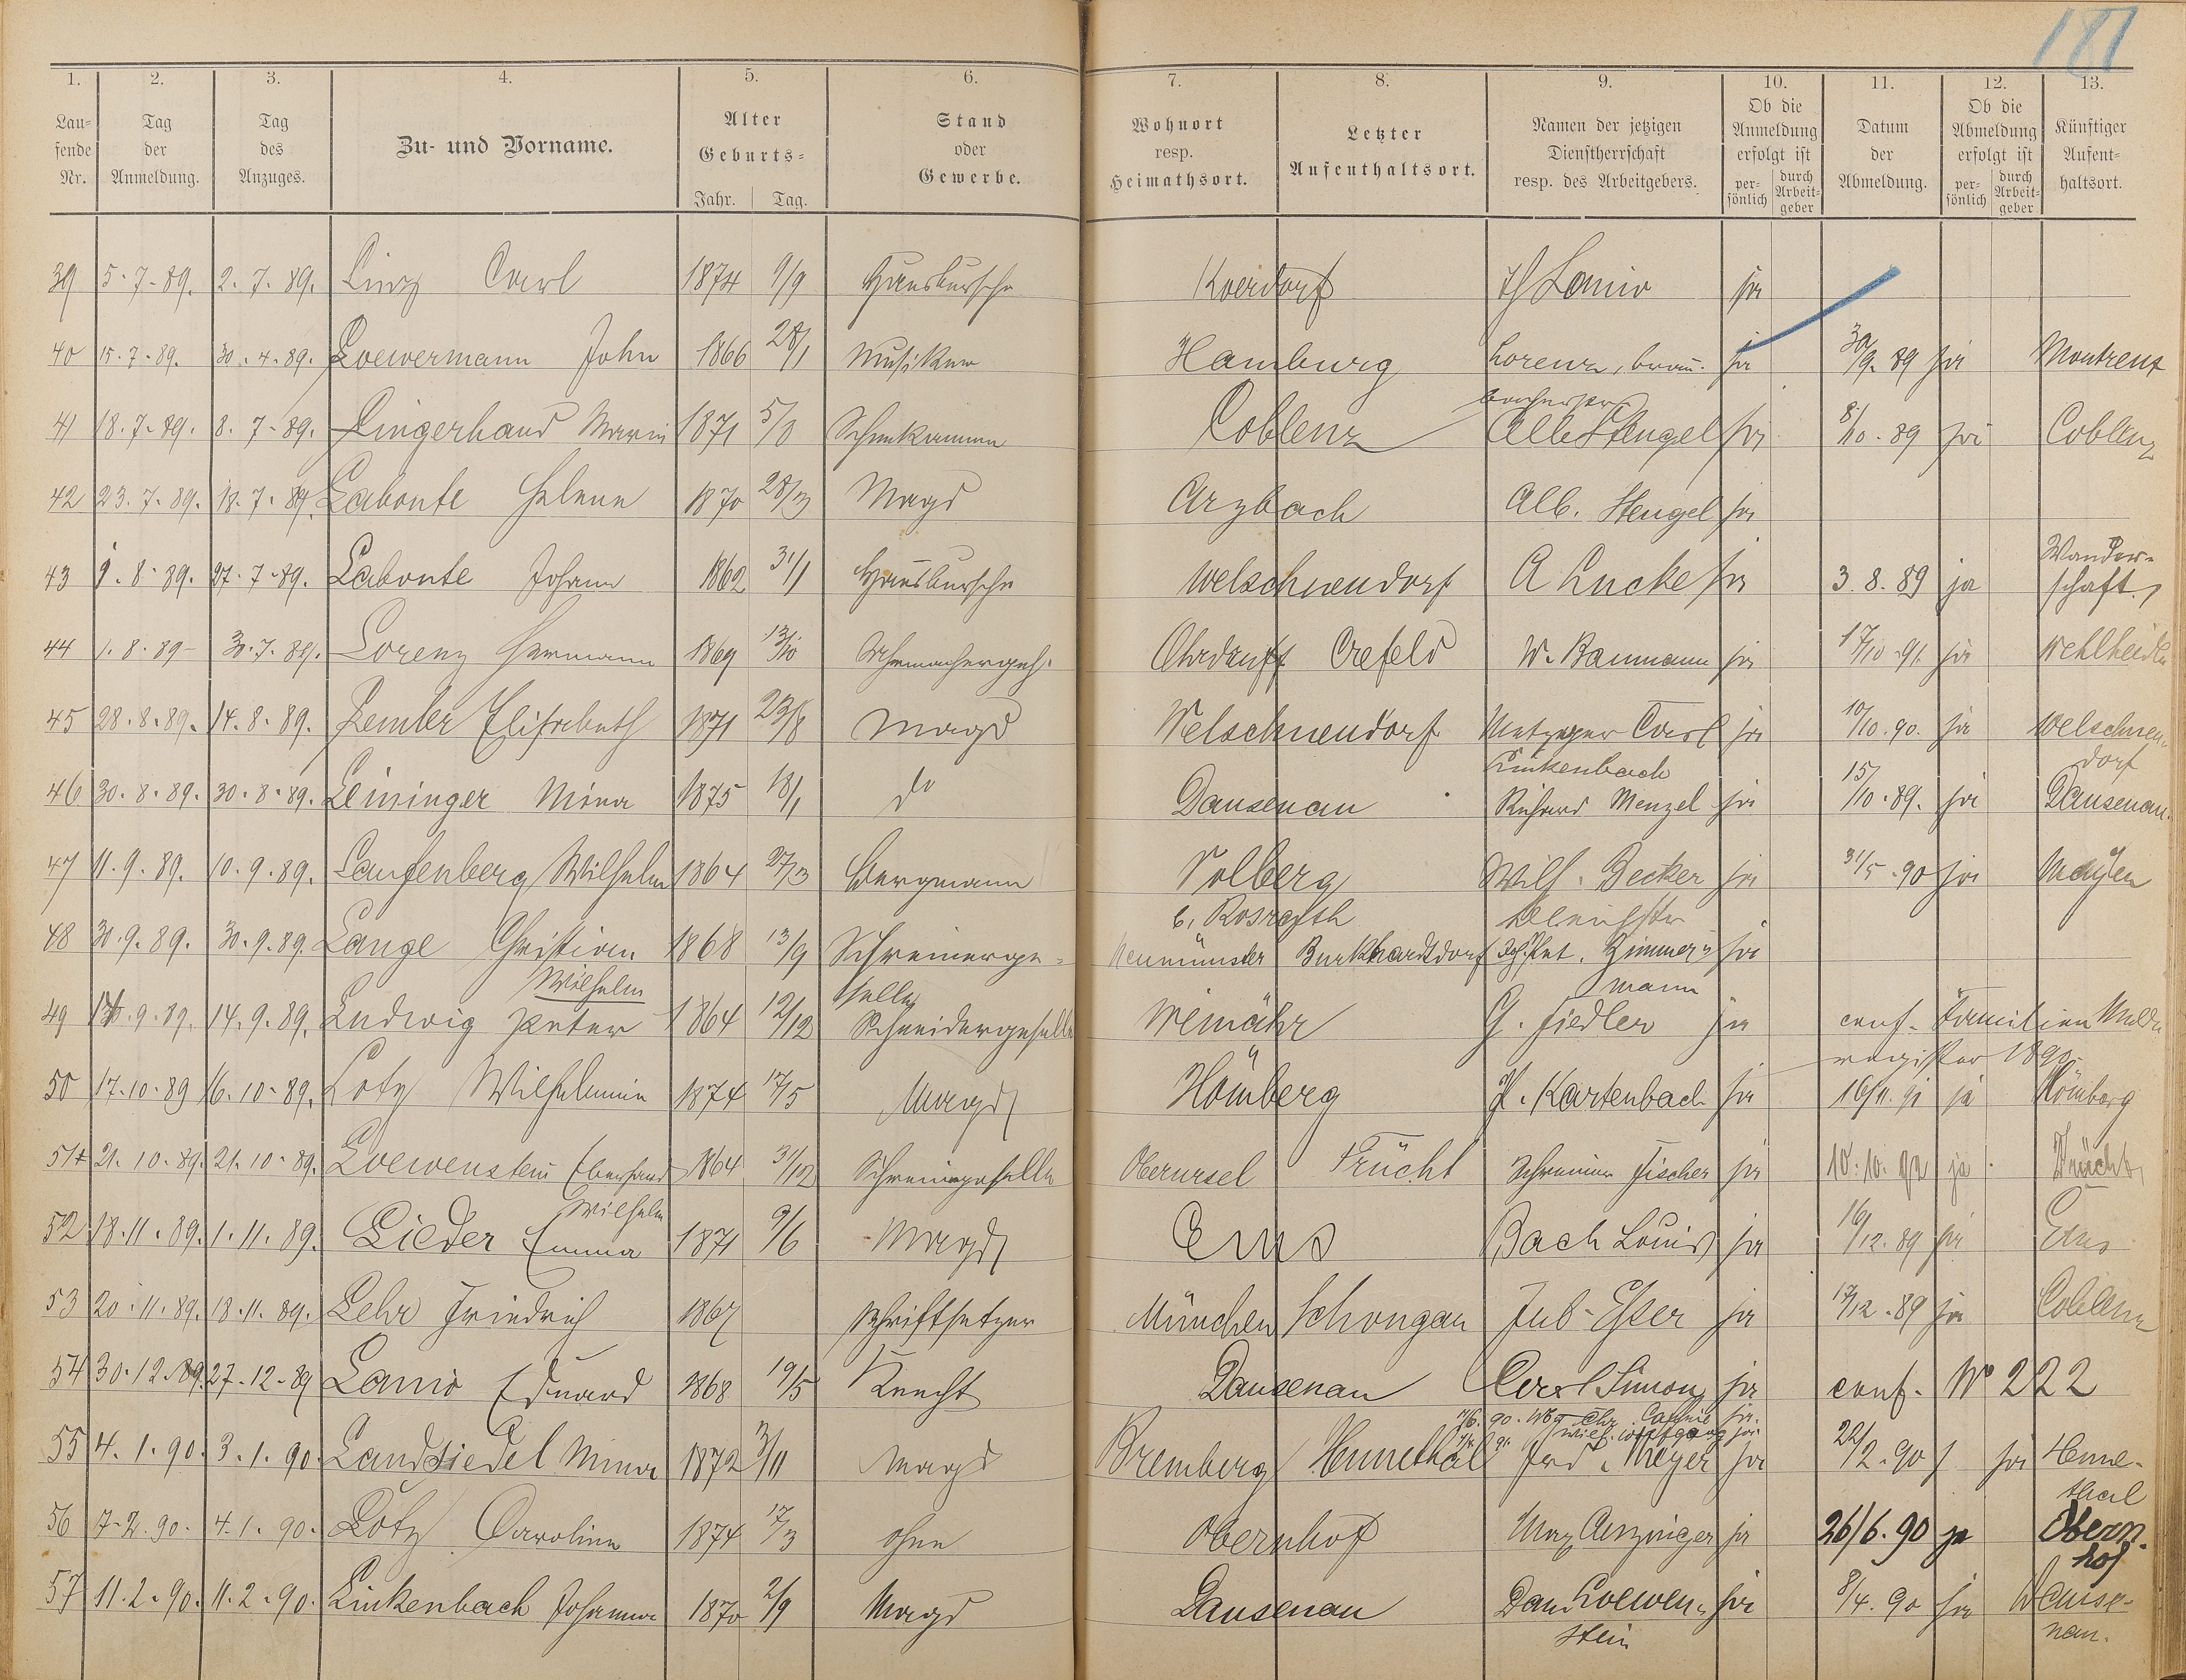 181
1. 2. 3. 4. 5. 6. 7. 8. 9. 10. 11. 12. 13.
Laufende Nr. Tag der Anmeldung. Tag des Anzuges. Zu- und Vorname. Alter Geburts- Jahr. Tag. Stand oder Gewerbe. Wohnort resp. Heimathsort. Letzter Aufenthaltsort. Namen der jetzigen Dienstherrschaft resp. des Arbeitgebers. Ob die Anmeldung erfolgt ist persönlich durch Arbeitgeber Datum der Abmeldung. Ob die Abmeldung erfolgt ist persönlich durch Arbeitgeber Künftiger Aufenthaltsort.
39 5.7.89. 2.7.89. Linz Carl 1874 9/9 Hausbursche ja
40 15.7.89. 30.4.89. Loewermann John 1866 28/1 Musiker Hamburg ja 30/9.89 ja Montreux
41 18.7.89. 8.7.89. Lingerhand Maria 1871 Schenkamme Coblenz Alb Stengel ja 8/10.89 ja Coblenz
42 23.7.89. 18.7.89. Labonte Helene 1870 28/3 Magd Arzbach Alb. Stengel ja
43 1.8.89. 27.7.89. Labonte Johann 1862 31/1 Hausbursche Welschneudorf A Lucke ja 3.8.89 ja Wander-
schaft
44 1.8.89 30.7.89. Lorenz Hermann 1869 13/10 Ohrdruff Crefeld W. Baumann ja 17/10.91. ja Wehlheiden
45 28.8.89. 14.8.89. Lemler Elisabeth 1871 23/8 Magd Welschneudorf Metzger Carl ja 10/10.90. ja Welschneu-
Linkenbach dorf
46 30.8.89. 30.8.89. Leininger Mina 1875 18/1 do Dausenau Richard Menzel ja 15/10.89. ja Dausenau.
47 11.9.89. 10.9.89. Laufenberg Wilhelm 1864 27/3 Bergmann Volberg Wilh. Becker ja 31/5.90 ja Mayen
b. Rosrath
48 30.9.89. 30.9.89. Lange Christian 1868 13/9 Schreinerge- Neumünster Burkhardtsdorf Zimmer- ja
Wilhelm selle mann
49 14.9.89. Ludwig Peter 1864 12/12 Schneidergeselle Weinähr G. Fiedler ja conf. Familien Melde
register 1890.
50 17.10.89 16.10.89. Lotz Wilhelmine 1874 17/5 Magd Hömberg Kartenbach ja 16/11.91 ja Hömberg
51 21.10.89. 21.10.89. Loewenstein Eberhard 1864 31/12 Schreinergeselle Oberursel Frücht Schreiner Fischer ja 10.10.92 ja Frücht
Wilhelm
52 18.11.89. 1.11.89. Lieder Emma 1871 9/6 Magd Ems Bach Louis ja 16/12.89 ja Ems
53 20.11.89. 18.11.89. Lehr Friedrich 1867 Schriftsetzer München Schongau ja 17/12.89 ja Coblenz
54 30.12.89. 27.12.89 Lanio Eduard 1868 19/5 Knecht Dausenau Carl Simon ja conf. No 222
55 4.1.90. 3.1.90. Landsiedel Mina 1872 3/11 Magd Bremberg Hennethal Ferd. Meyer ja 22/2.90 ja Henne-
thal
56 7.2.90. 4.1.90. Lotz Caroline 1874 17/3 ohne Obernhof Max ja 26/6.90 ja Obern-
hof
57 11.2.90. 11.2.90. Linkenbach Johanna 1870 2/9 Magd Dausenau Loewen- ja 8/4.90 ja Dause-
stein nau.